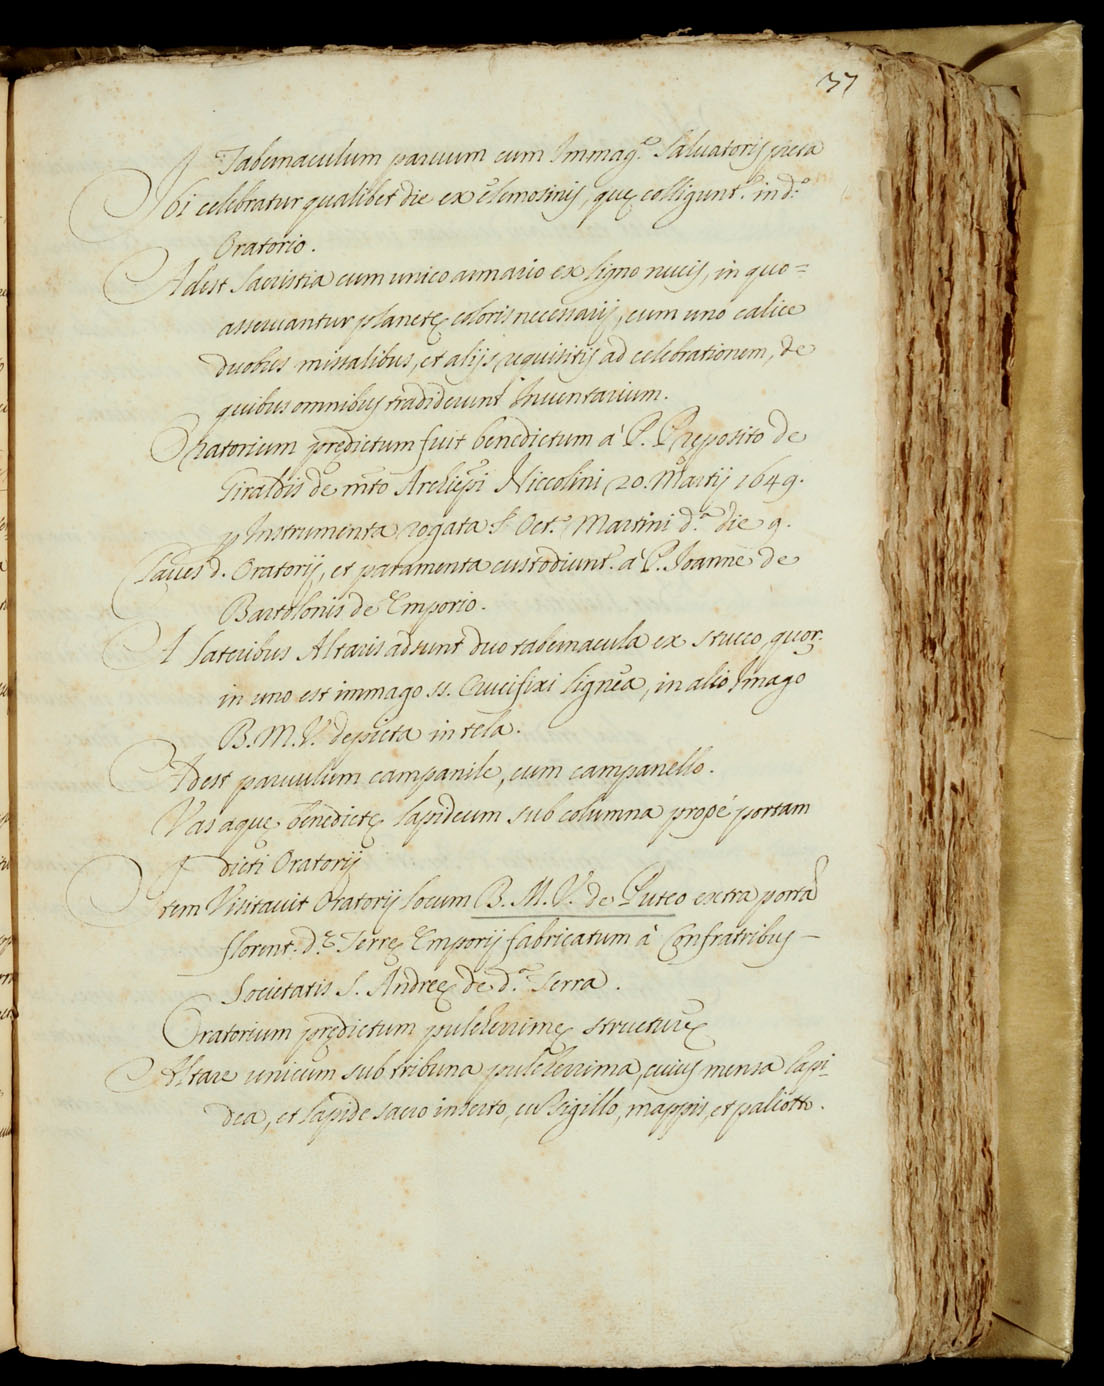 37
Tabernaculum paruum cum Immag.e Saluatoris picta
Ibi celebratur qualibet die ex elemosinis, quę colligunt.r in d.o
Oratorio.
Adest Sacristia cum unico armario ex ligno nucis, in quo=
asseruantur planetę coloris necessarij, cum uno calice
duobus missalibus, et alijs requisitis ad celebrationem, de
quibus omnibus tradiderunt Inuentarium.
Oratorium prędictum fuit benedictum à P. Pręposito de
Giraldis de m.to Archiepi Niccolini 20. Martij 1649.
p Instrumenta rogata S. Oct.o Martini d.a die 9.
Claues d. Oratorij, et paramenta custodiunt.r à P. Joanne de
Bartolonis de Emporio.
A lateribus Altaris adsunt duo tabernacula ex stucco, quor.
in uno est immago SS. Crucifixi lignea, in alio Imago
B. M. V. depicta in tela.
Adest paruulum campanile, cum campanello.
Vas aquę benedictę lapideum sub columna propè portam
dicti Oratorij
Item Visitauit Oratorij locum B. M. V. de Puteo extra portã
florent. d.ę Terrę Emporij fabricatum à Confratribus –
Societatis S. Andreę de d.a Terra.
Oratorium prędictum pulcherrimę structurę
Altare unicum sub tribuna pulcherrima, cuius mensa lapi-
dea, et lapide sacro inserto, cũ sigillo, mappis, et paliotto.